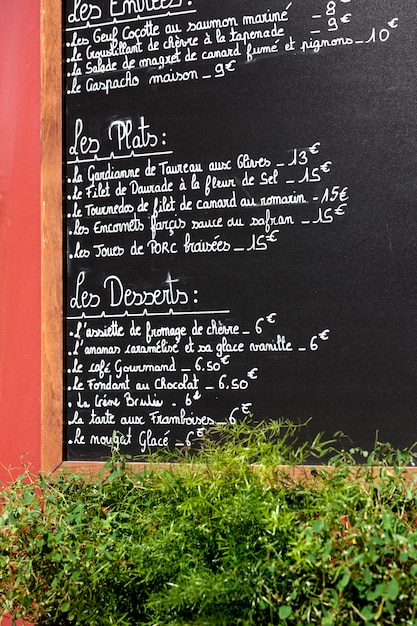 Les Entrées:
• Les Œuf Coçotte au saumon mariné _ 8€
• Le Croustillant de chèvre à la tapenade _ 9€
• La Salade de magret de canard fumé et pignons _ 10€
• Le Gaspacho maison _ 9€
Les Plats:
• La Gardianne de Taureau aux Olives _ 13€
• Le Filet de Daurade à la fleur de Sel _ 15€
• Le Tournedos de filet de canard au romarin - 15€
• Les Encornets farçis sauce au safran _ 15€
• Les Joues de PORC braisées _ 15€
Les Desserts:
• L'assiette de fromage de chèvre _ 6€
• L'ananas caramélisé et sa glace vanille _ 6€
• Le café Gourmand _ 6.50€
• Le Fondant au Chocolat _ 6.50€
• La Crème Brulée _ 6€
• La tarte aux Framboises _ 6€
• Le nougat Glacé _ 6€